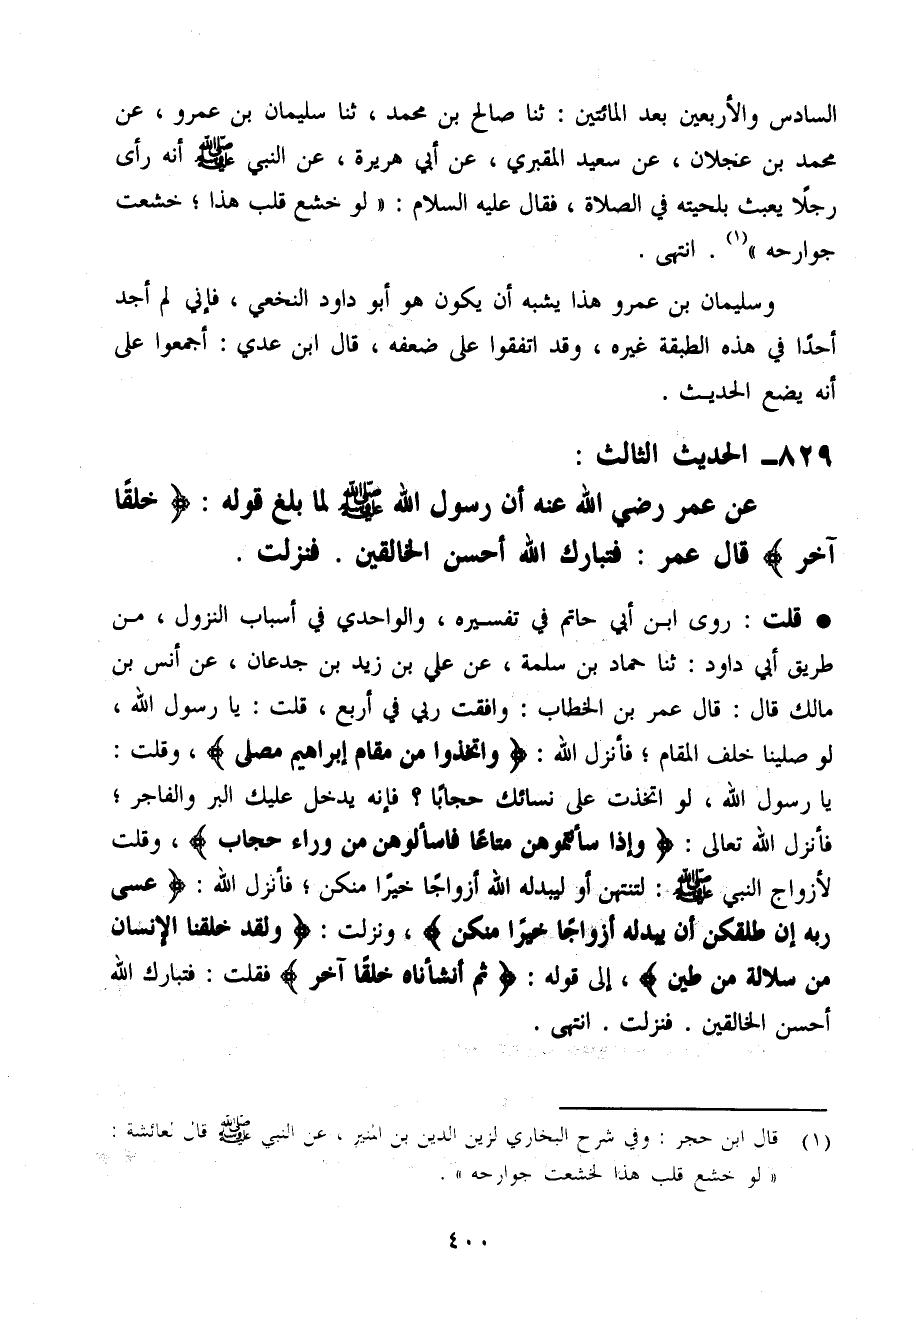 السادس والأربعين بعد المائتين : ثنا صالح بن محمد ، ثنا سليمان بن عمرو ، عن
محمد بن عجلان ، عن سعيد المقبري ، عن أبي هريرة ، عن النبي ﷺ أنه رأى
رجلًا يعبث بلحيته في الصلاة ، فقال عليه السلام : « لو خشع قلب هذا ؛ خشعت
جوارحه »(١) . انتهى .
وسليمان بن عمرو هذا يشبه أن يكون هو أبو داود النخعي ، فإني لم أجد
أحدًا في هذه الطبقة غيره ، وقد اتفقوا على ضعفه ، قال ابن عدي : أجمعوا على
أنه يضع الحديث .
٨٢٩ـ الحديث الثالث :
عن عمر رضي الله عنه أن رسول الله ﷺ لما بلغ قوله : ﴿ خلقًا
آخر ﴾ قال عمر : فتبارك الله أحسن الخالقين . فنزلت .
● قلت : روى ابن أبي حاتم في تفسيره ، والواحدي في أسباب النزول ، من
طريق أبي داود : ثنا حماد بن سلمة ، عن علي بن زيد بن جدعان ، عن أنس بن
مالك قال : قال عمر بن الخطاب : وافقت ربي في أربع ، قلت : يا رسول الله ،
لو صلينا خلف المقام ؛ فأنزل الله : ﴿ واتخذوا من مقام إبراهيم مصلى ﴾ ، وقلت :
يا رسول الله ، لو اتخذت على نسائك حجابًا ؟ فإنه يدخل عليك البر والفاجر ؛
فأنزل الله تعالى : ﴿ وإذا سألتموهن متاعًا فاسألوهن من وراء حجاب ﴾ ، وقلت
لأزواج النبي ﷺ : لتنتهن أو ليبدله الله أزواجًا خيرًا منكن ؛ فأنزل الله : ﴿ عسى
ربه إن طلقكن أن يبدله أزواجًا خيرًا منكن ﴾ ، ونزلت : ﴿ ولقد خلقنا الإنسان
من سلالة من طين ﴾ ، إلى قوله : ﴿ ثم أنشأناه خلقًا آخر ﴾ فقلت : فتبارك الله
أحسن الخالقين . فنزلت . انتهى .
(١) قال ابن حجر : وفي شرح البخاري لزين الدين بن المنير ، عن النبي ﷺ قال لعائشة :
« لو خشع قلب هذا لخشعت جوارحه » .
٤٠٠